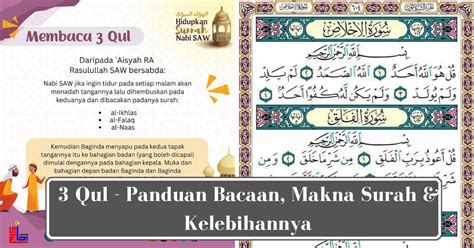 المولد النبوي
Hidupkan
Sunnah
Nabi SAW
Membaca 3 Qul
Daripada `Aisyah RA
Rasulullah SAW bersabda:
Nabi SAW jika ingin tidur pada setiap malam akan
menadah tangannya lalu dihembuskan pada
keduanya dan dibacakan padanya surah:
• al-Ikhlas
• al-Falaq
• al-Naas
Kemudian Baginda menyapu pada kedua tapak
tangannya itu ke bahagian badan (yang boleh dicapai)
dimulai dengannya pada bahagian kepala. Muka dan
bahagian depan badan Baginda dan Baginda
٦٠٤
سُورَةُ الإِخْلَاصِ
بِسْمِ اللَّهِ الرَّحْمَٰنِ الرَّحِيمِ
قُلْ هُوَ اللَّهُ أَحَدٌ ١ اللَّهُ الصَّمَدُ ٢ لَمْ يَلِدْ
وَلَمْ يُولَدْ ٣ وَلَمْ يَكُن لَّهُ كُفُوًا أَحَدٌ ٤
سُورَةُ الْفَلَقِ
بِسْمِ اللَّهِ الرَّحْمَٰنِ الرَّحِيمِ
قُلْ أَعُوذُ بِرَبِّ الْفَلَقِ ١ مِن شَرِّ مَا خَلَقَ ٢
3 Qul - Panduan Bacaan, Makna Surah &
Kelebihannya